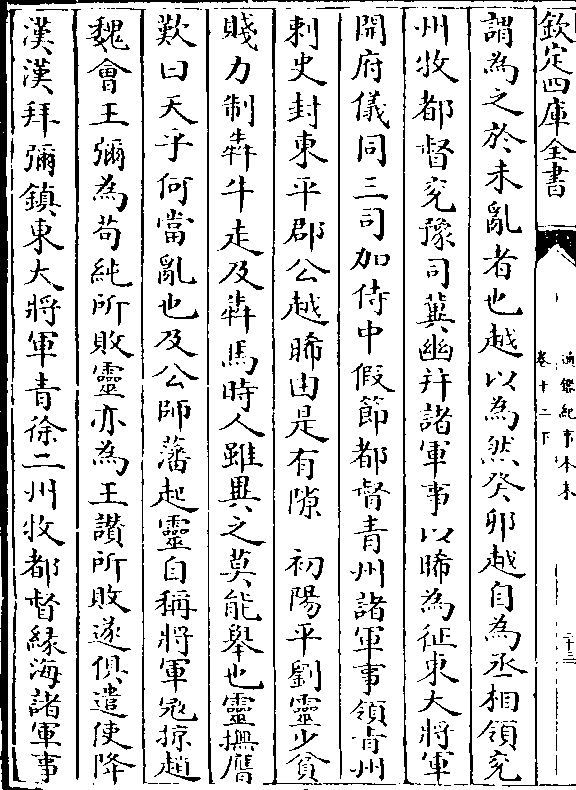 欽定四庫全書
通鑑紀事本末
卷十二下
二十三
謂為之於未亂者也越以為然癸卯越自為丞相領兖
州牧都督兖豫司冀幽并諸軍事以晞為征東大將軍
開府儀同三司加侍中假節都督青州諸軍事領青州
刺史封東平郡公越晞由是有隙 初陽平劉靈少貧
賤力制犇牛走及犇馬時人雖異之莫能舉也靈撫膺
歎曰天乎何當亂也及公師藩起靈自稱將軍寇掠趙
魏會王彌為苟純所敗靈亦為王讚所敗遂俱遣使降
漢漢拜彌鎮東大將軍青徐二州牧都督緣海諸軍事